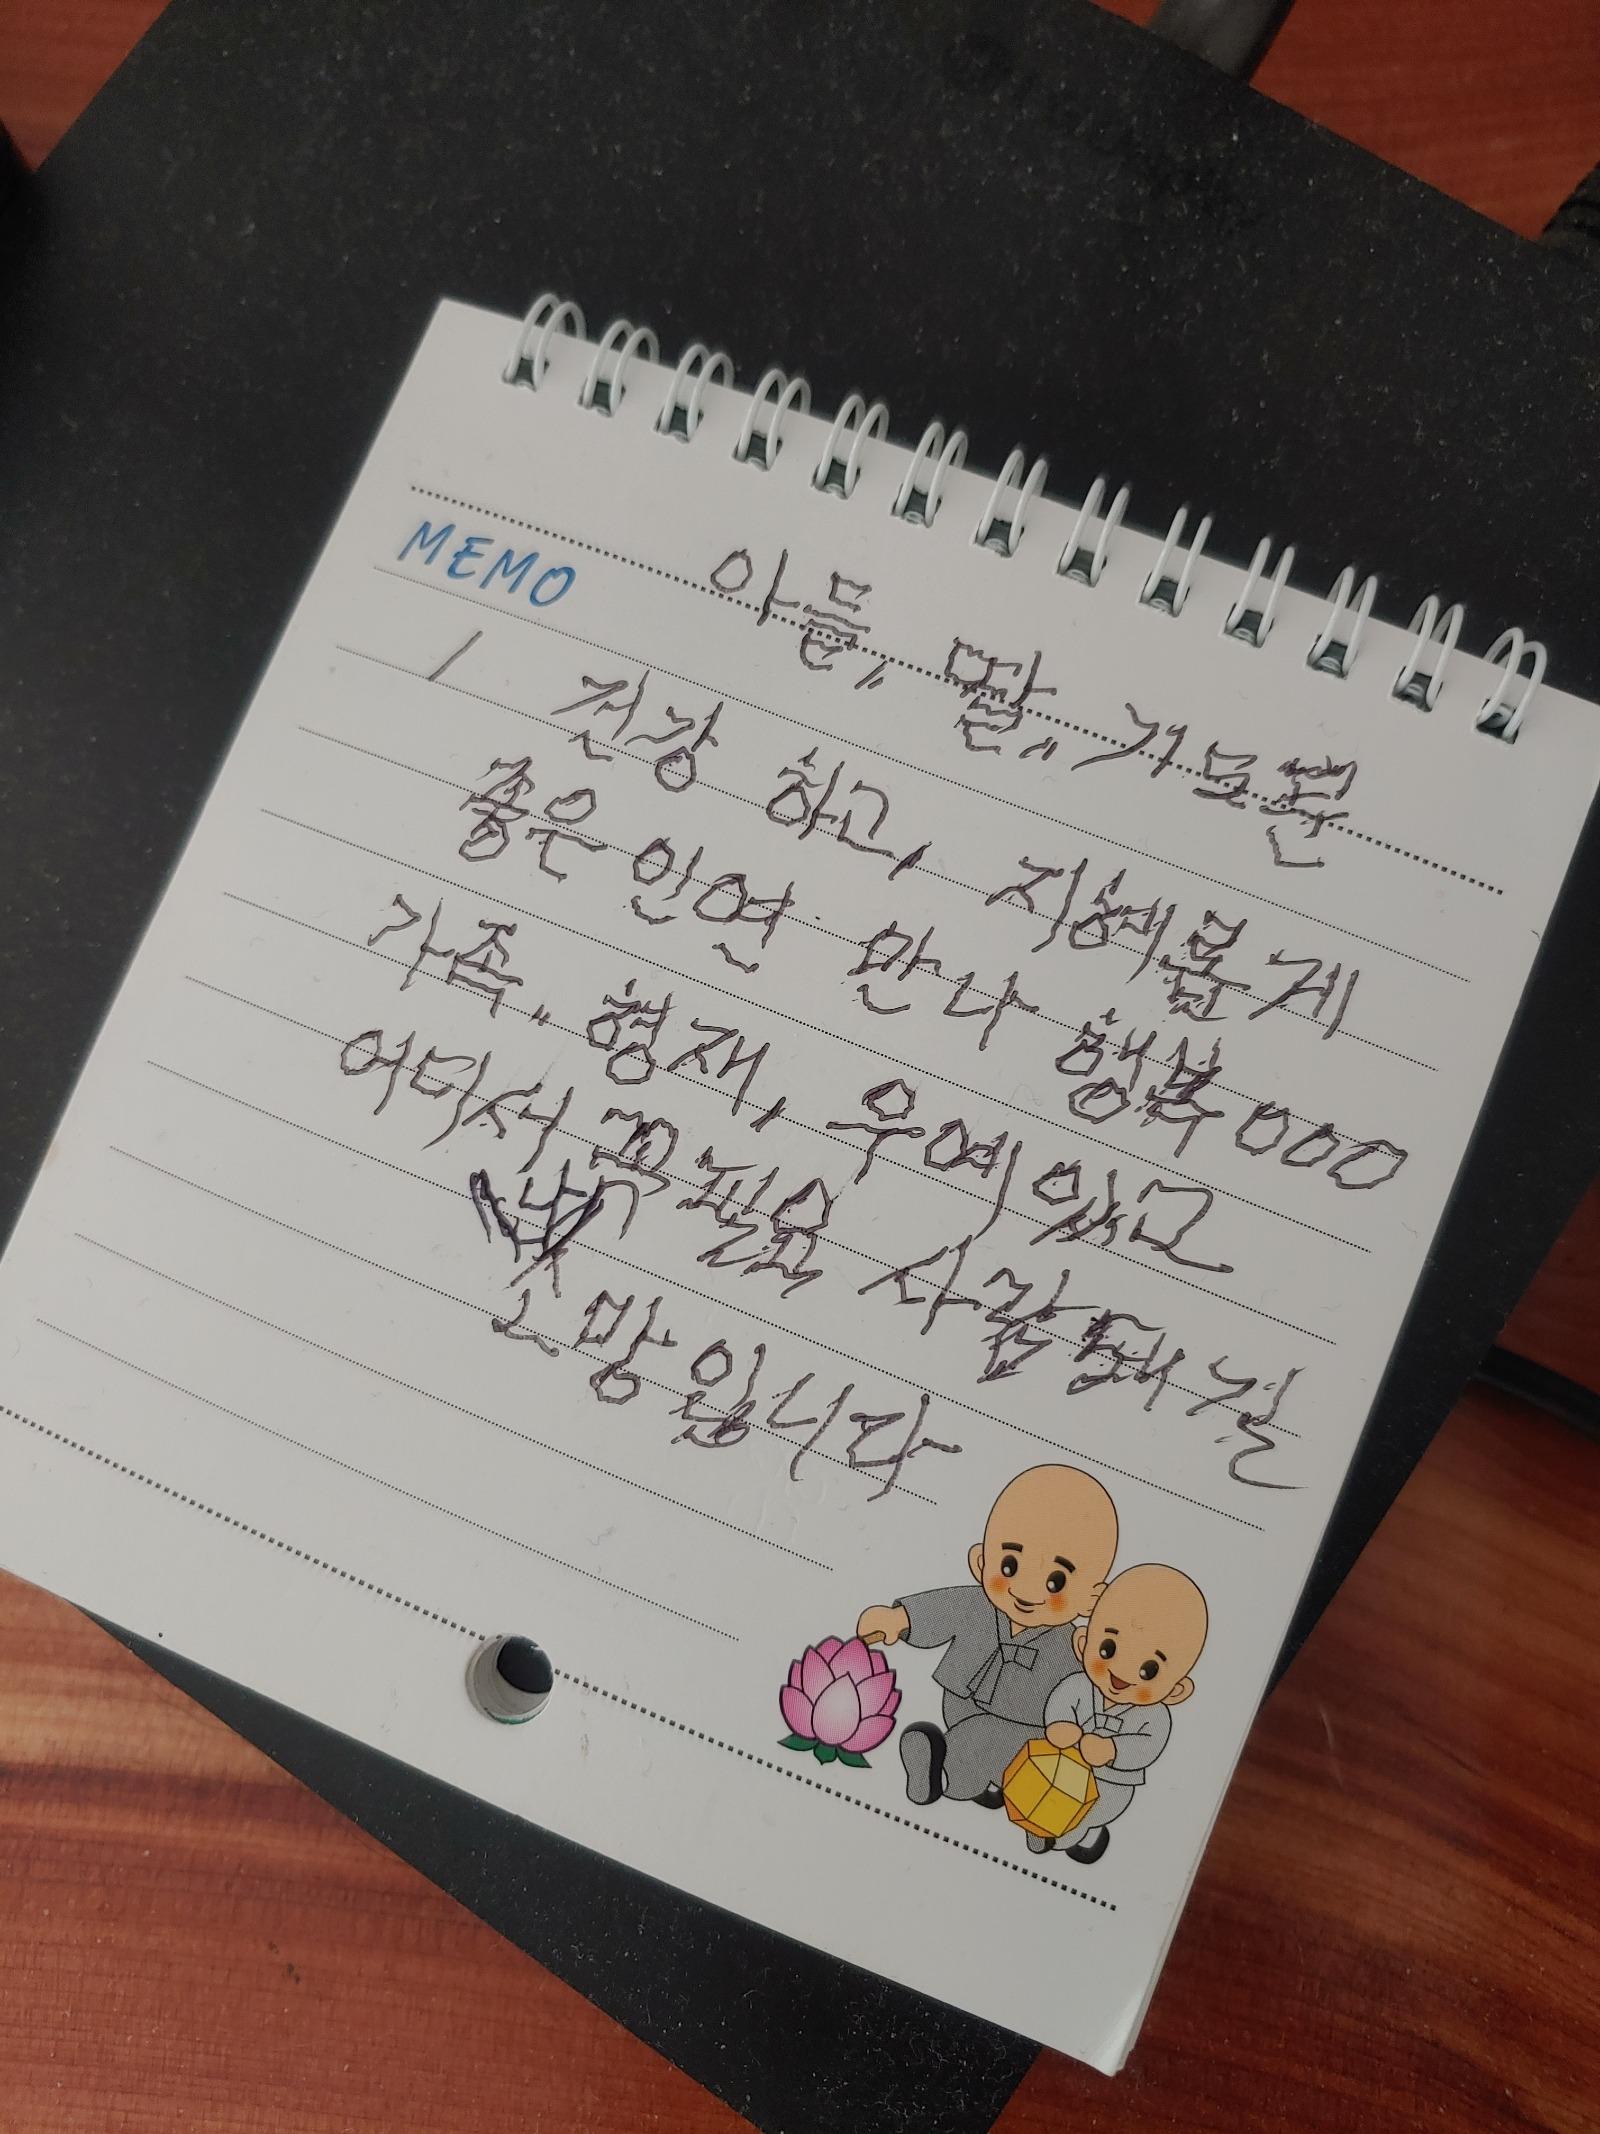 MEMO 아들, 딸, 기도문
1 건강 하고, 지혜롭게
좋은 인연 만나 행복 000
가족, 형제, 우애 있고
어디서 꼭 필요 사람 돼 길
소망 입니다